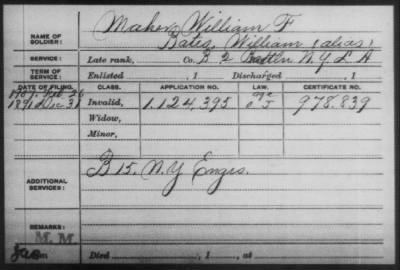 NAME OF SOLDIER:
Maher, William F
Bates, William (alias)
SERVICE:
Late rank,
Co. B 2 Battln N.Y.L A
TERM OF SERVICE:
Enlisted , 1
Discharged , 1
DATE OF FILING.
CLASS.
APPLICATION NO.
LAW.
CERTIFICATE NO.
1907. Feb. 26
1891 Dec 31
Invalid,
1.124,395
978.839
Widow,
Minor,
ADDITIONAL SERVICES:
B 15. N.Y Engrs.
REMARKS:
M. M.
Died , 1 , at